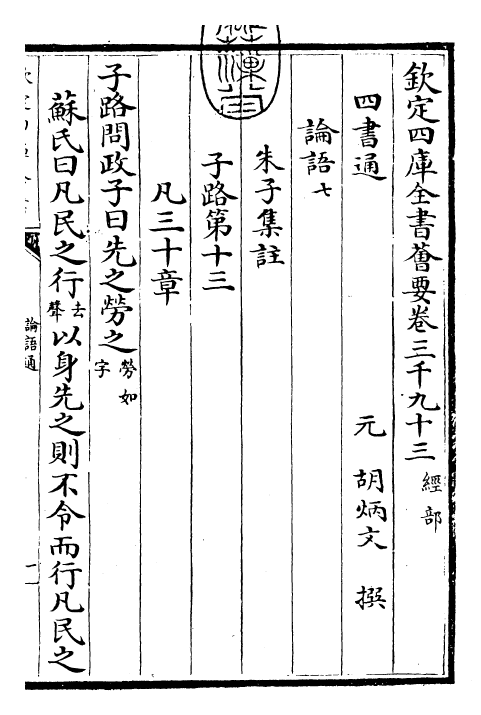 欽定四庫全書薈要卷三千九十三 經部
四書通 元 胡炳文 撰
論語七
朱子集註
子路第十三
凡三十章
子路問政子曰先之勞之勞如字
蘇氏曰凡民之行去聲以身先之則不令而行凡民之
論語通